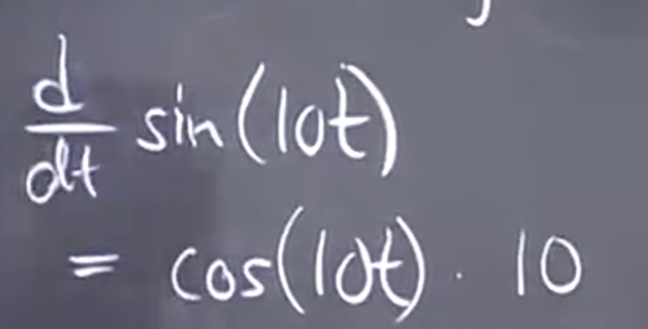 d/dt sin(10t)
= cos(10t) · 10